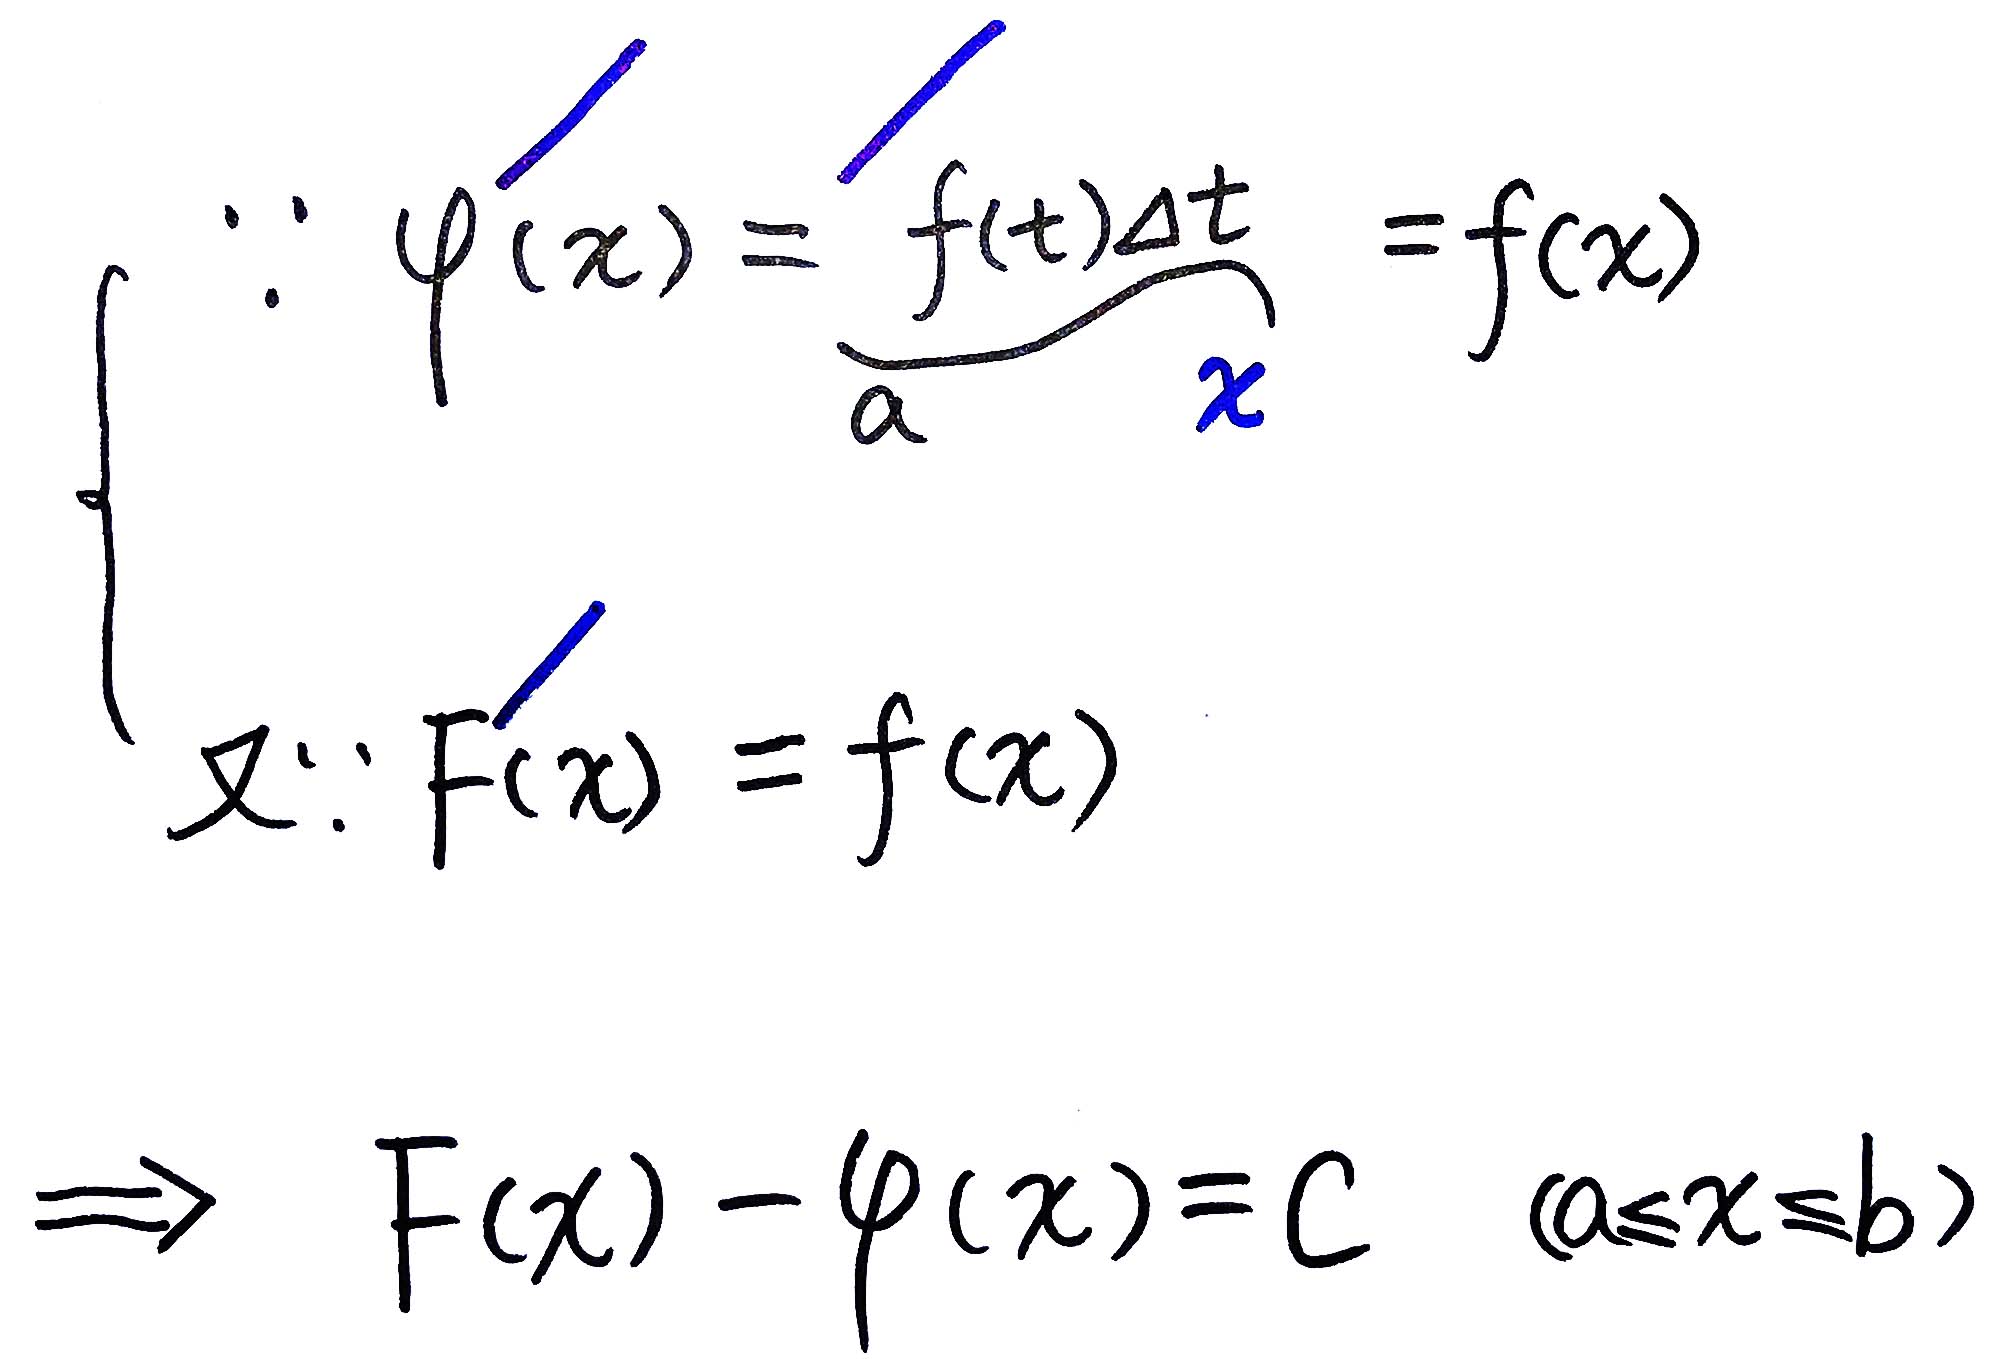 ∵ φ′(x) = ′ f(t)Δt = f(x)
a x
又∵ F′(x) = f(x)
⟹ F(x) − φ(x) = C (a≤x≤b)